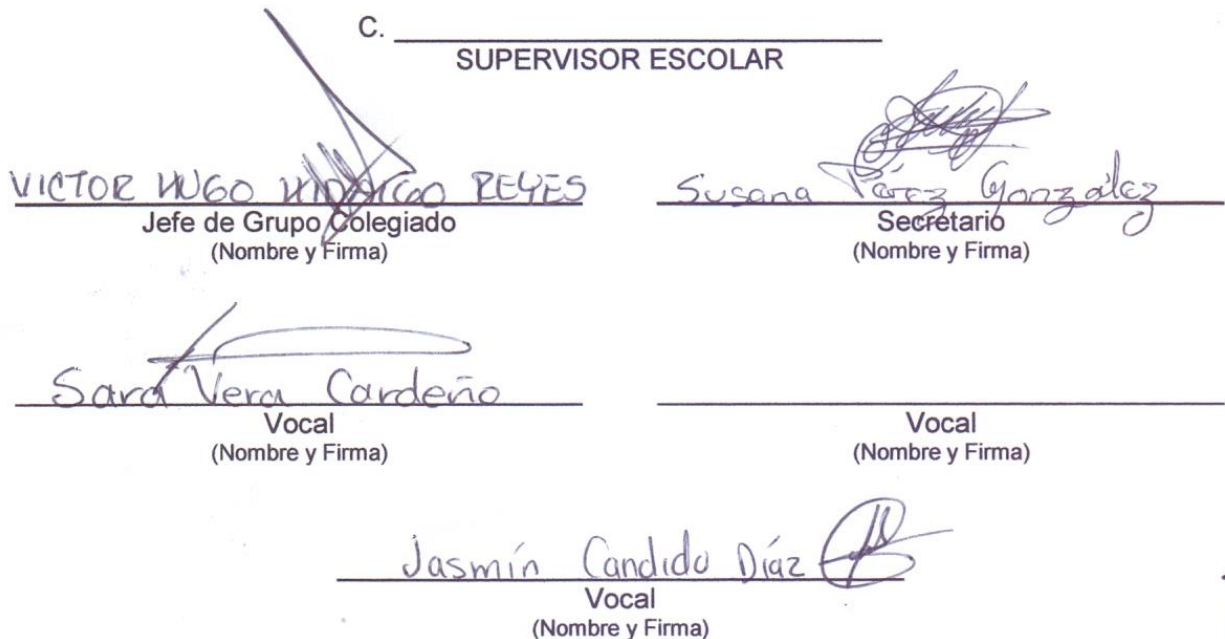 C.
SUPERVISOR ESCOLAR
VICTOR HUGO HIDALGO REYES
Jefe de Grupo Colegiado
(Nombre y Firma)
Susana Pérez González
Secretario
(Nombre y Firma)
Sara Vera Cardeño
Vocal
(Nombre y Firma)
Vocal
(Nombre y Firma)
Jasmín Candido Díaz
Vocal
(Nombre y Firma)